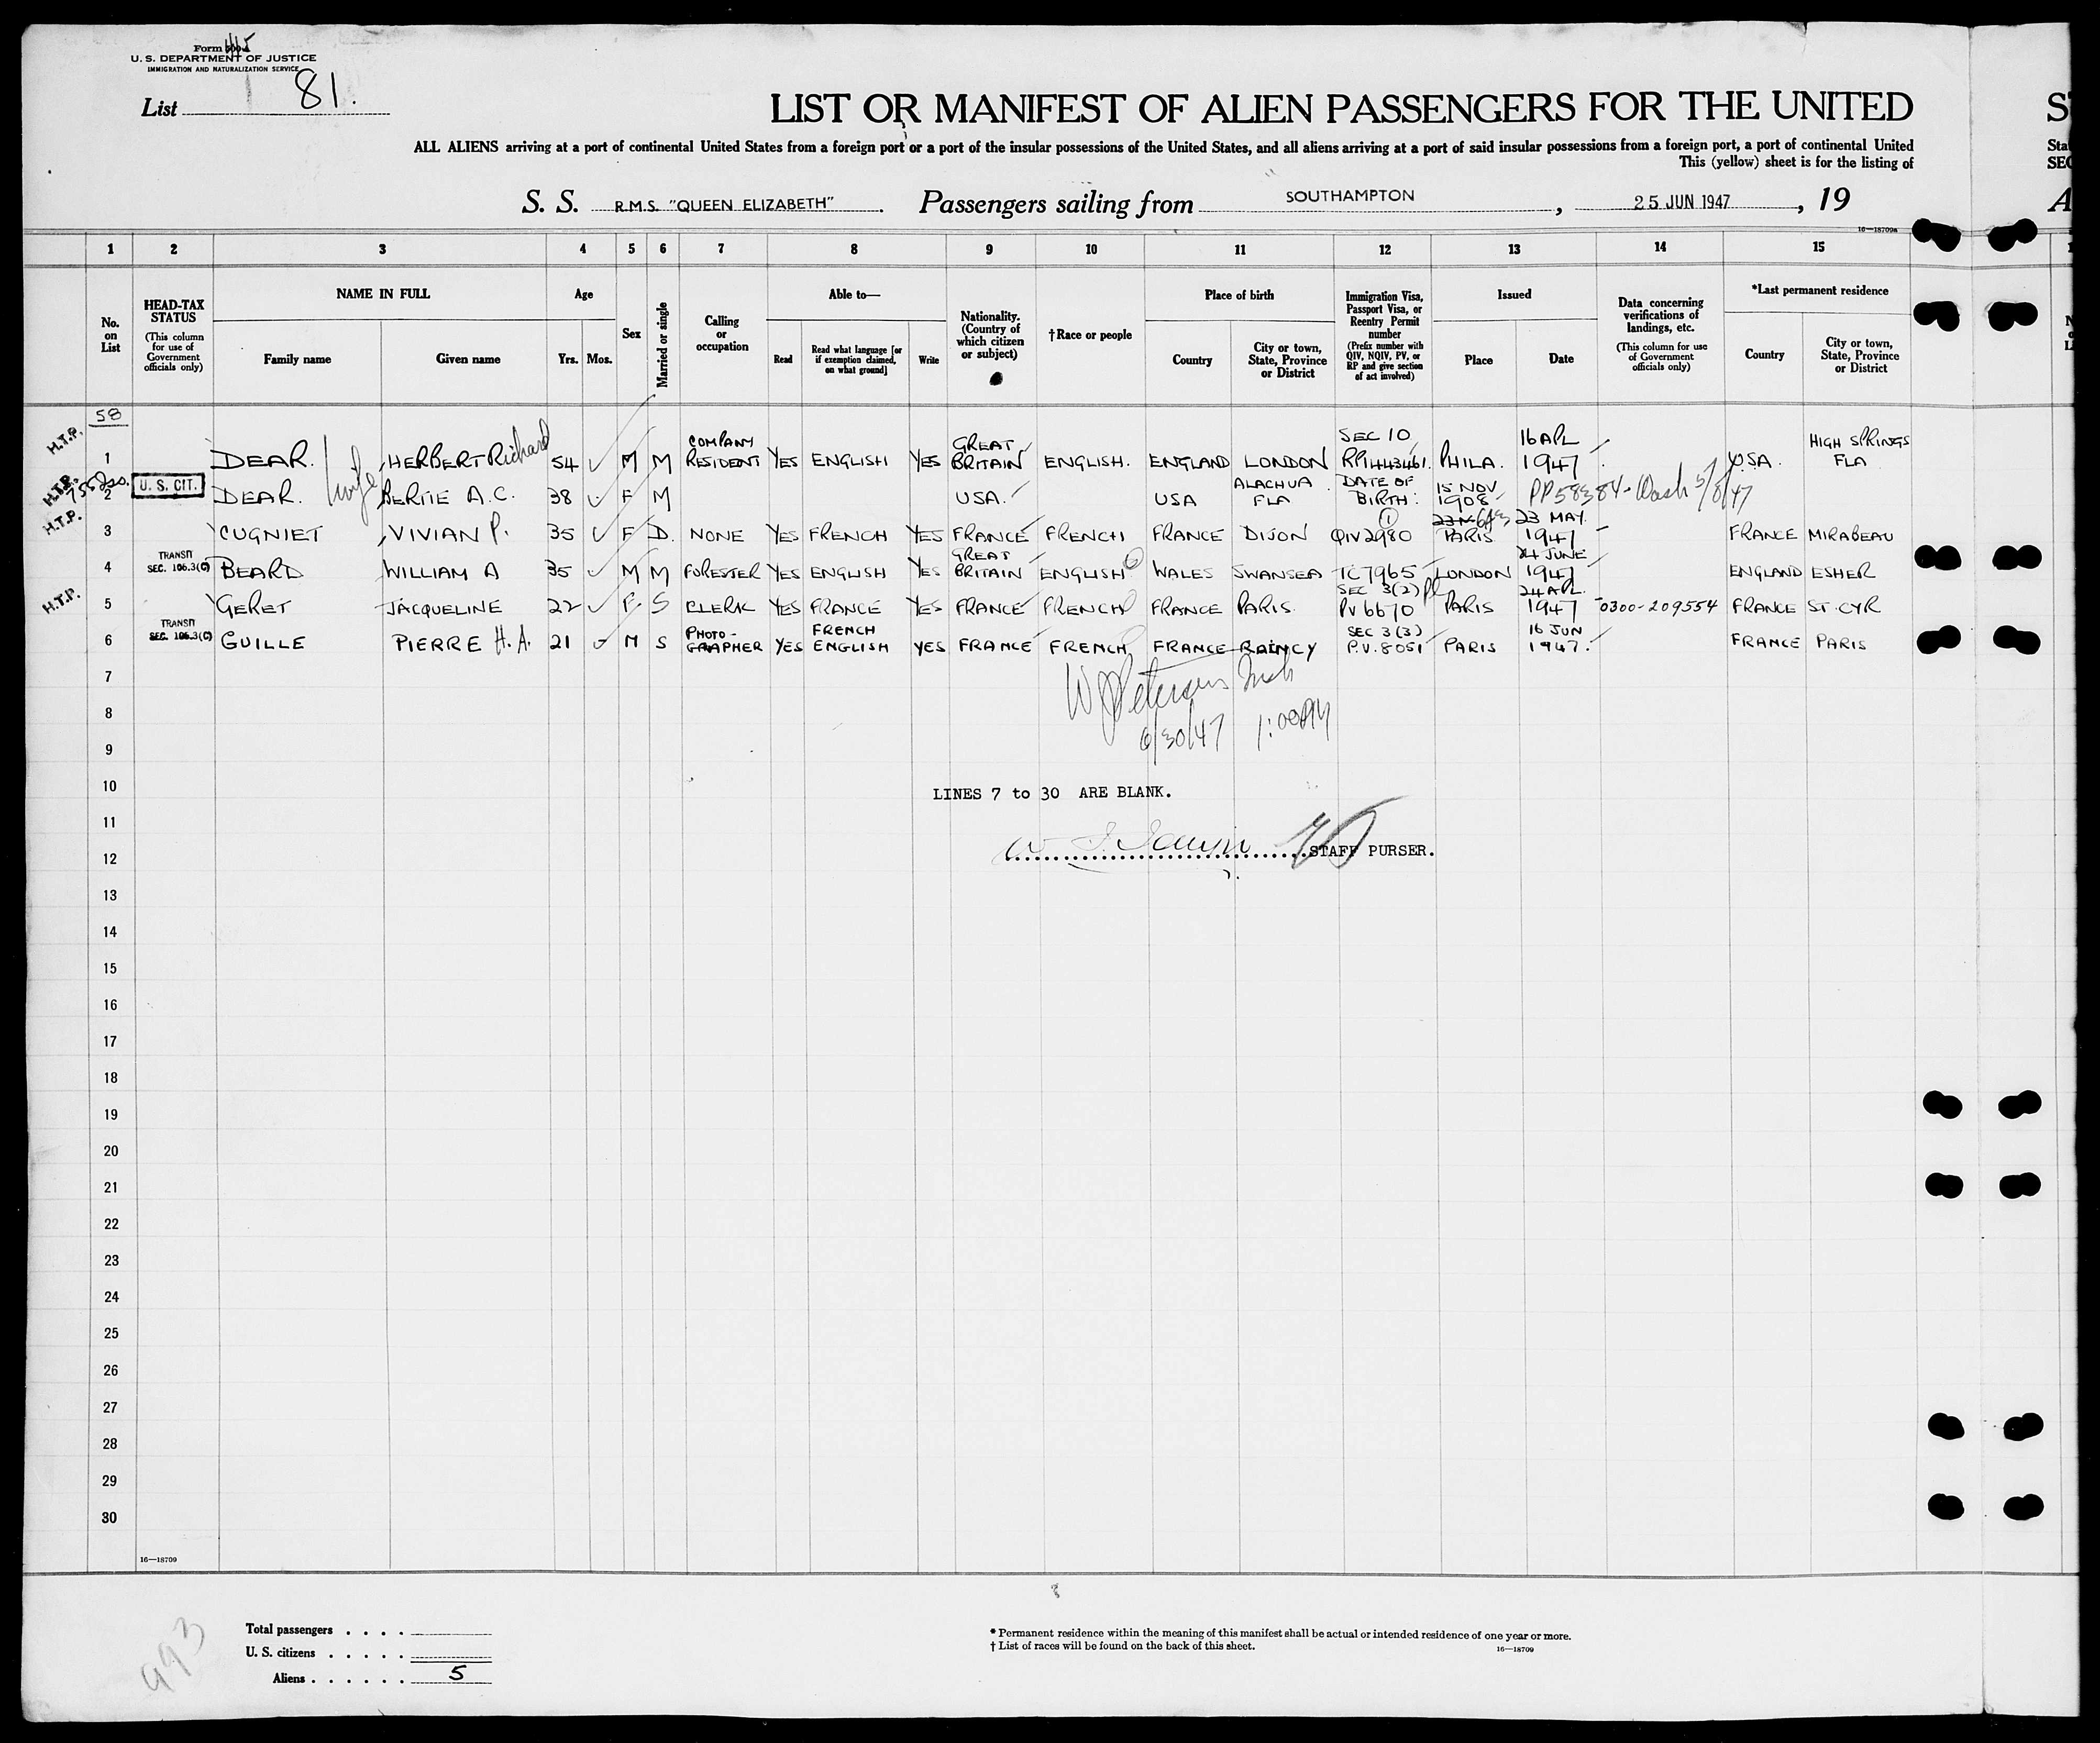 Form
U. S. DEPARTMENT OF JUSTICE
IMMIGRATION AND NATURALIZATION SERVICE
List 81.
LIST OR MANIFEST OF ALIEN PASSENGERS FOR THE UNITED
ALL ALIENS arriving at a port of continental United States from a foreign port or a port of the insular possessions of the United States, and all aliens arriving at a port of said insular possessions from a foreign port, a port of continental United
This (yellow) sheet is for the listing of
S. S. R.M.S. "QUEEN ELIZABETH". Passengers sailing from SOUTHAMPTON, 25 JUN 1947, 19
16—18709a
1 2 3 4 5 6 7 8 9 10 11 12 13 14 15
No. on List
HEAD-TAX STATUS (This column for use of Government officials only)
NAME IN FULL
Family name Given name
Age
Yrs. Mos.
Sex
Married or single
Calling or occupation
Able to—
Read Read what language [or if exemption claimed, on what ground] Write
Nationality. (Country of which citizen or subject)
†Race or people
Place of birth
Country City or town, State, Province or District
Immigration Visa, Passport Visa, or Reentry Permit number (Prefix number with QIV, NQIV, PV, or RP and give section of act involved)
Issued
Place Date
Data concerning verifications of landings, etc. (This column for use of Government officials only)
*Last permanent residence
Country City or town, State, Province or District
58
H.T.P. 1 DEAR. HERBERT Richard 54 M M COMPANY RESIDENT YES ENGLISH YES GREAT BRITAIN ENGLISH. ENGLAND LONDON SEC 10 RP1443461. PHILA. 16 APL 1947 USA. HIGH SPRINGS FLA
H.T.P. 2 U. S. CIT. DEAR. wife BERTIE A.C. 38 F M USA. USA ALACHUA FLA DATE OF BIRTH: 15 NOV 1908 PP58384 - Wash 5/8/47
H.T.P. 3 CUGNIET VIVIAN P. 35 F D. NONE YES FRENCH YES FRANCE FRENCH FRANCE DIJON QIV2980 PARIS 23 MAY. 1947 FRANCE MIRABEAU
4 TRANSIT SEC. 106.3(C) BEARD WILLIAM A 35 M M FORESTER YES ENGLISH YES GREAT BRITAIN ENGLISH WALES SWANSEA TC7965 LONDON 24 JUNE 1947 ENGLAND ESHER
H.T.P. 5 GERET JACQUELINE 22 F S CLERK YES FRANCE YES FRANCE FRENCH FRANCE PARIS. SEC 3(2) PV 6670 PARIS 24 APL. 1947 0300-209554 FRANCE ST. CYR
6 TRANSIT SEC. 106.3(C) GUILLE PIERRE H.A. 21 M S PHOTO-GRAPHER YES FRENCH ENGLISH YES FRANCE FRENCH FRANCE RAINCY SEC 3(3) P.V. 8051 PARIS 16 JUN 1947. FRANCE PARIS
7
W J Petersen Insp
8
6/30/47 1:00PM
9
10
LINES 7 to 30 ARE BLANK.
11
12
STAFF PURSER.
13
14
15
16
17
18
19
20
21
22
23
24
25
26
27
28
29
30
16—18709
993
Total passengers
U. S. citizens
Aliens 5
* Permanent residence within the meaning of this manifest shall be actual or intended residence of one year or more.
† List of races will be found on the back of this sheet. 16—18709